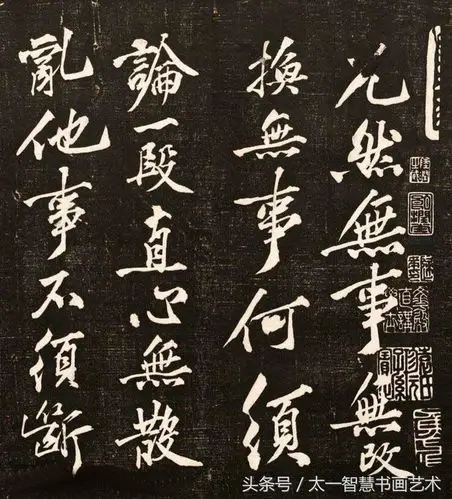 兀然無事無改
換無事何須
論一段直心無散
亂他事不須斷
头条号 / 太一智慧书画艺术